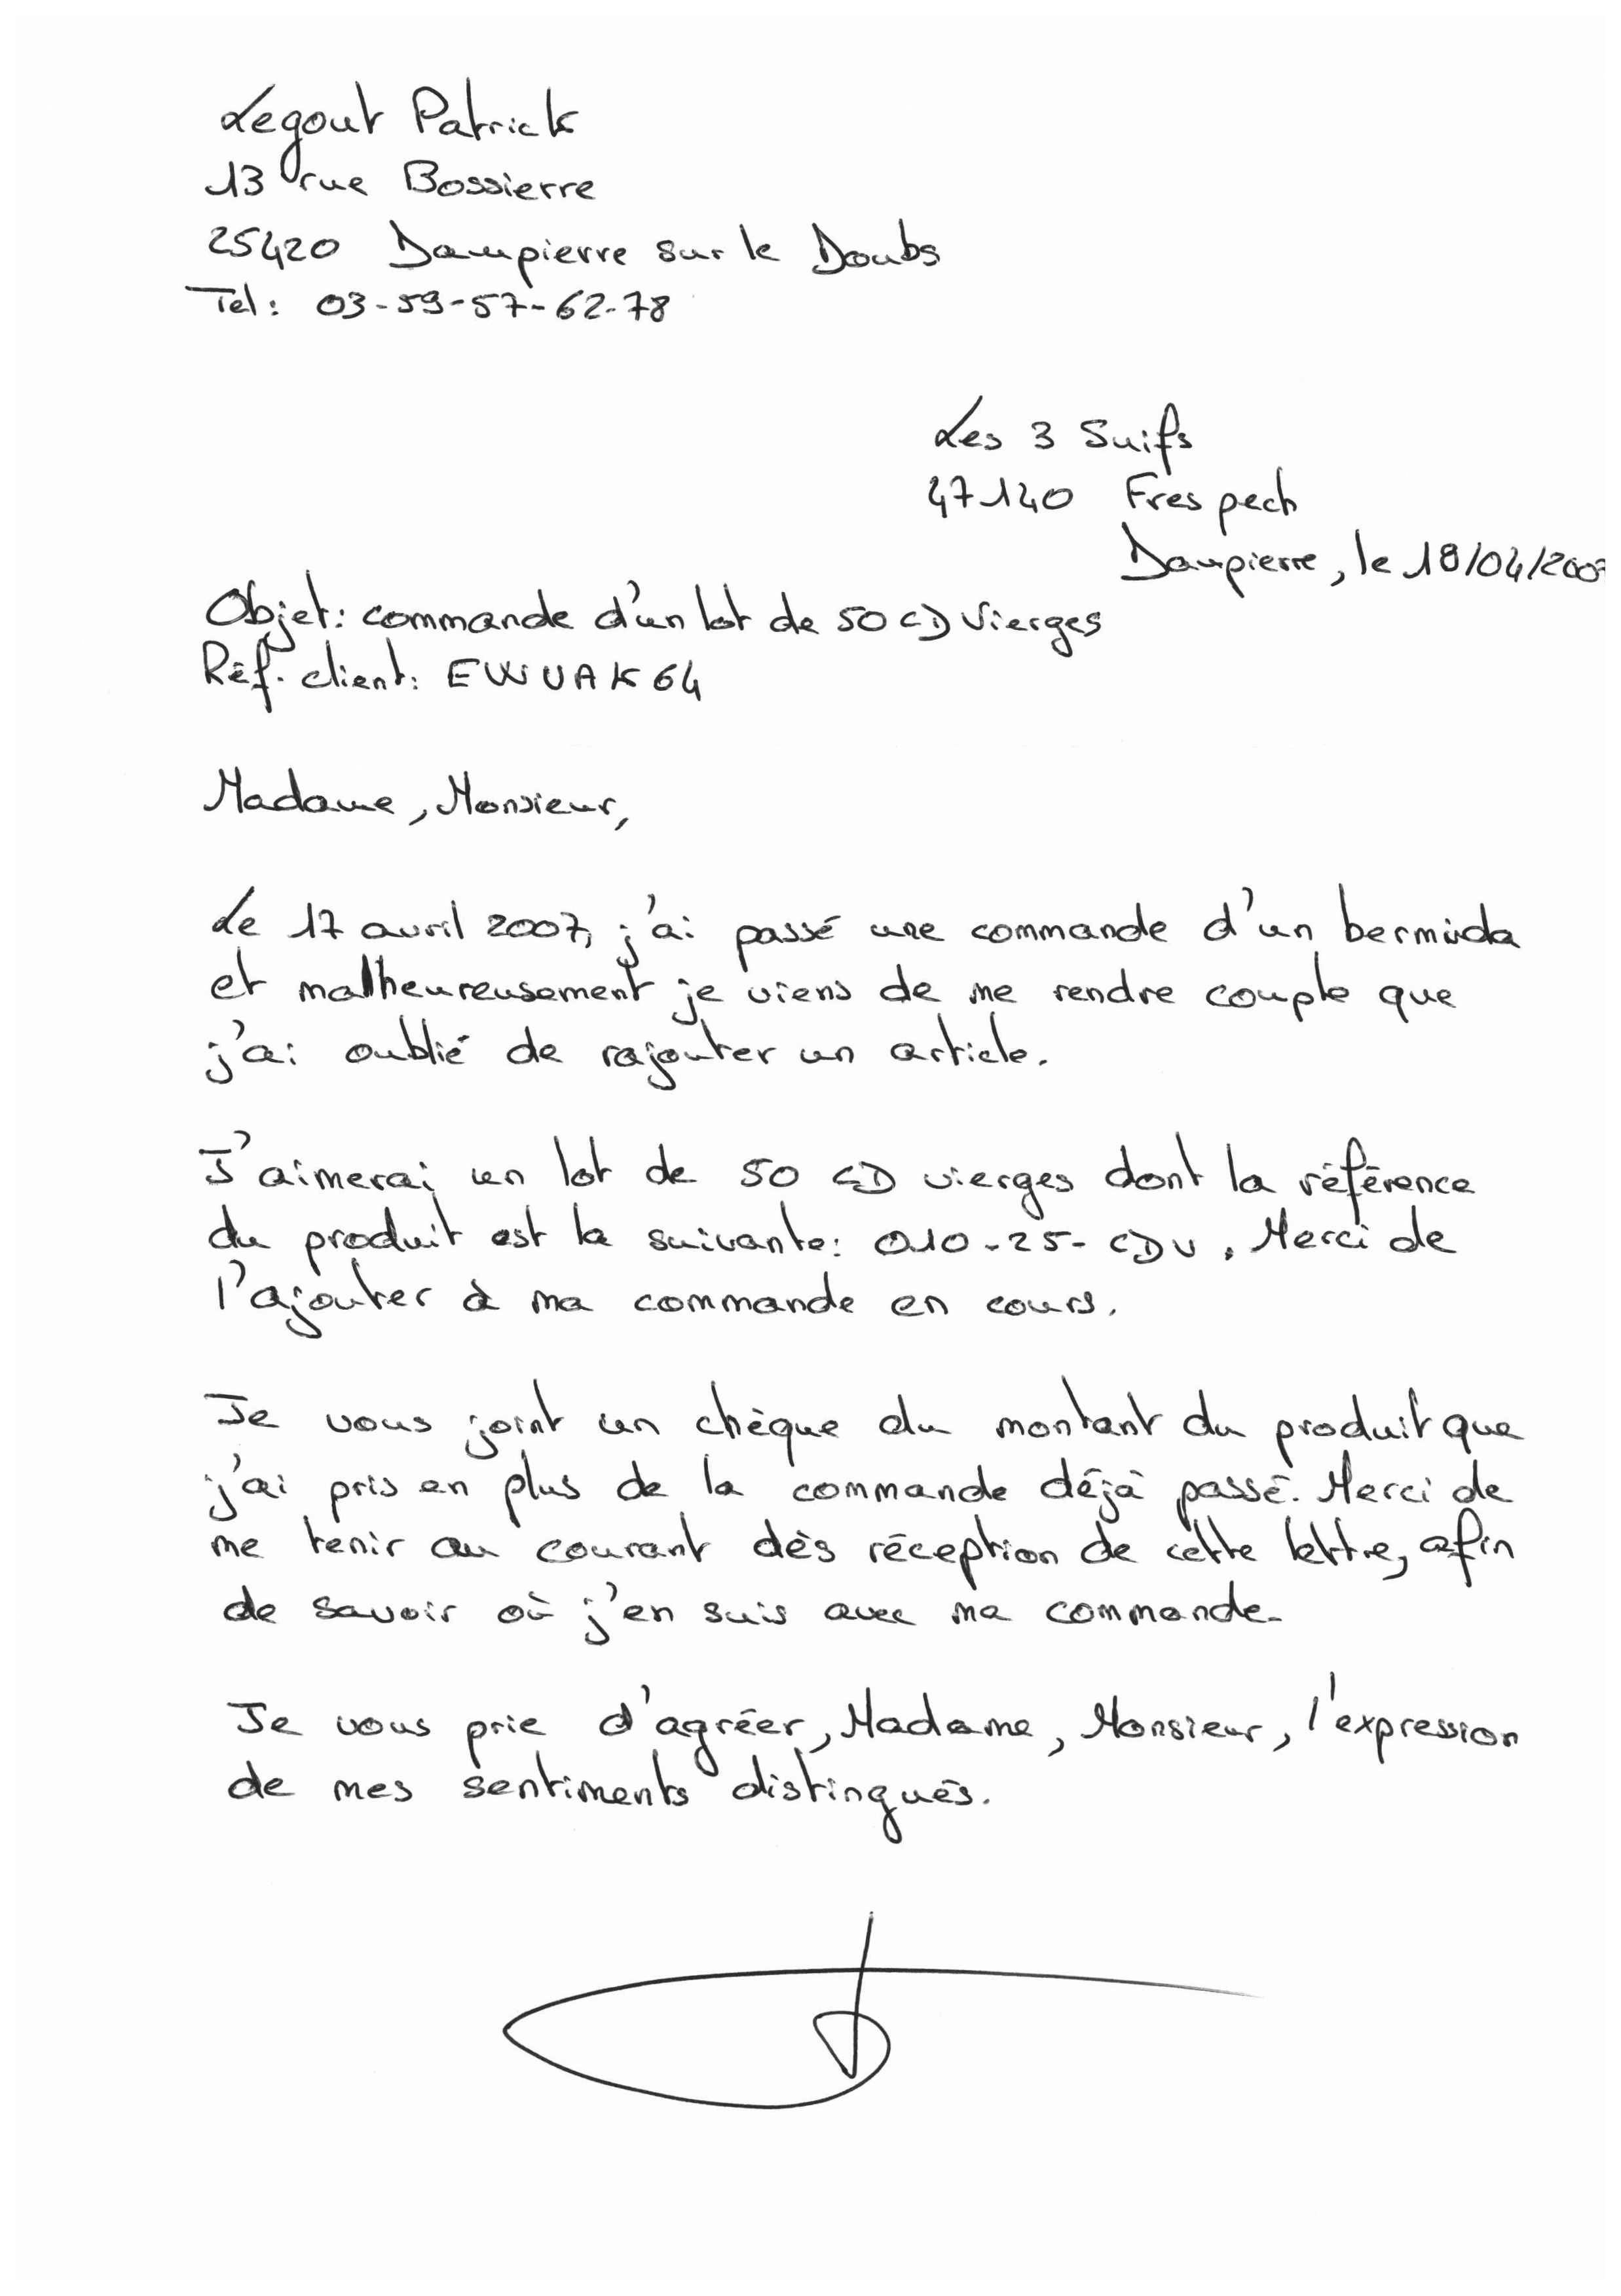 Legout Patrick
13 rue Bossierre
25420 Dampierre sur le Doubs
Tel: 03-59-57-62-78
Les 3 Suifs
47140 Frespech
Dampierre, le 18/04/2007
Objet: commande d'un lot de 50 CD Vierges
Réf. client: EWUAK64
Madame, Monsieur,
Le 17 avril 2007, j'ai passé une commande d'un bermuda
et malheureusement je viens de me rendre compte que
j'ai oublié de rajouter un article.
J'aimerai un lot de 50 CD vierges dont la référence
du produit est la suivante: 010-25-CDV. Merci de
l'ajouter à ma commande en cours.
Je vous joint un chèque du montant du produit que
j'ai pris en plus de la commande déjà passé. Merci de
me tenir au courant dès réception de cette lettre, afin
de savoir où j'en suis avec ma commande.
Je vous prie d'agréer, Madame, Monsieur, l'expression
de mes sentiments distingués.